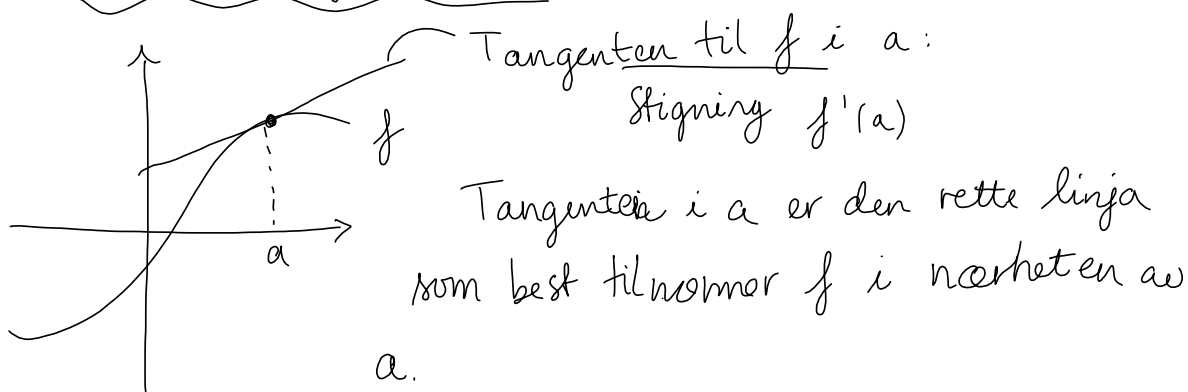 Tangenten til f i a:
Stigning f'(a)
f
a
Tangenten i a er den rette linja
som best tilnærmer f i nærheten av
a.